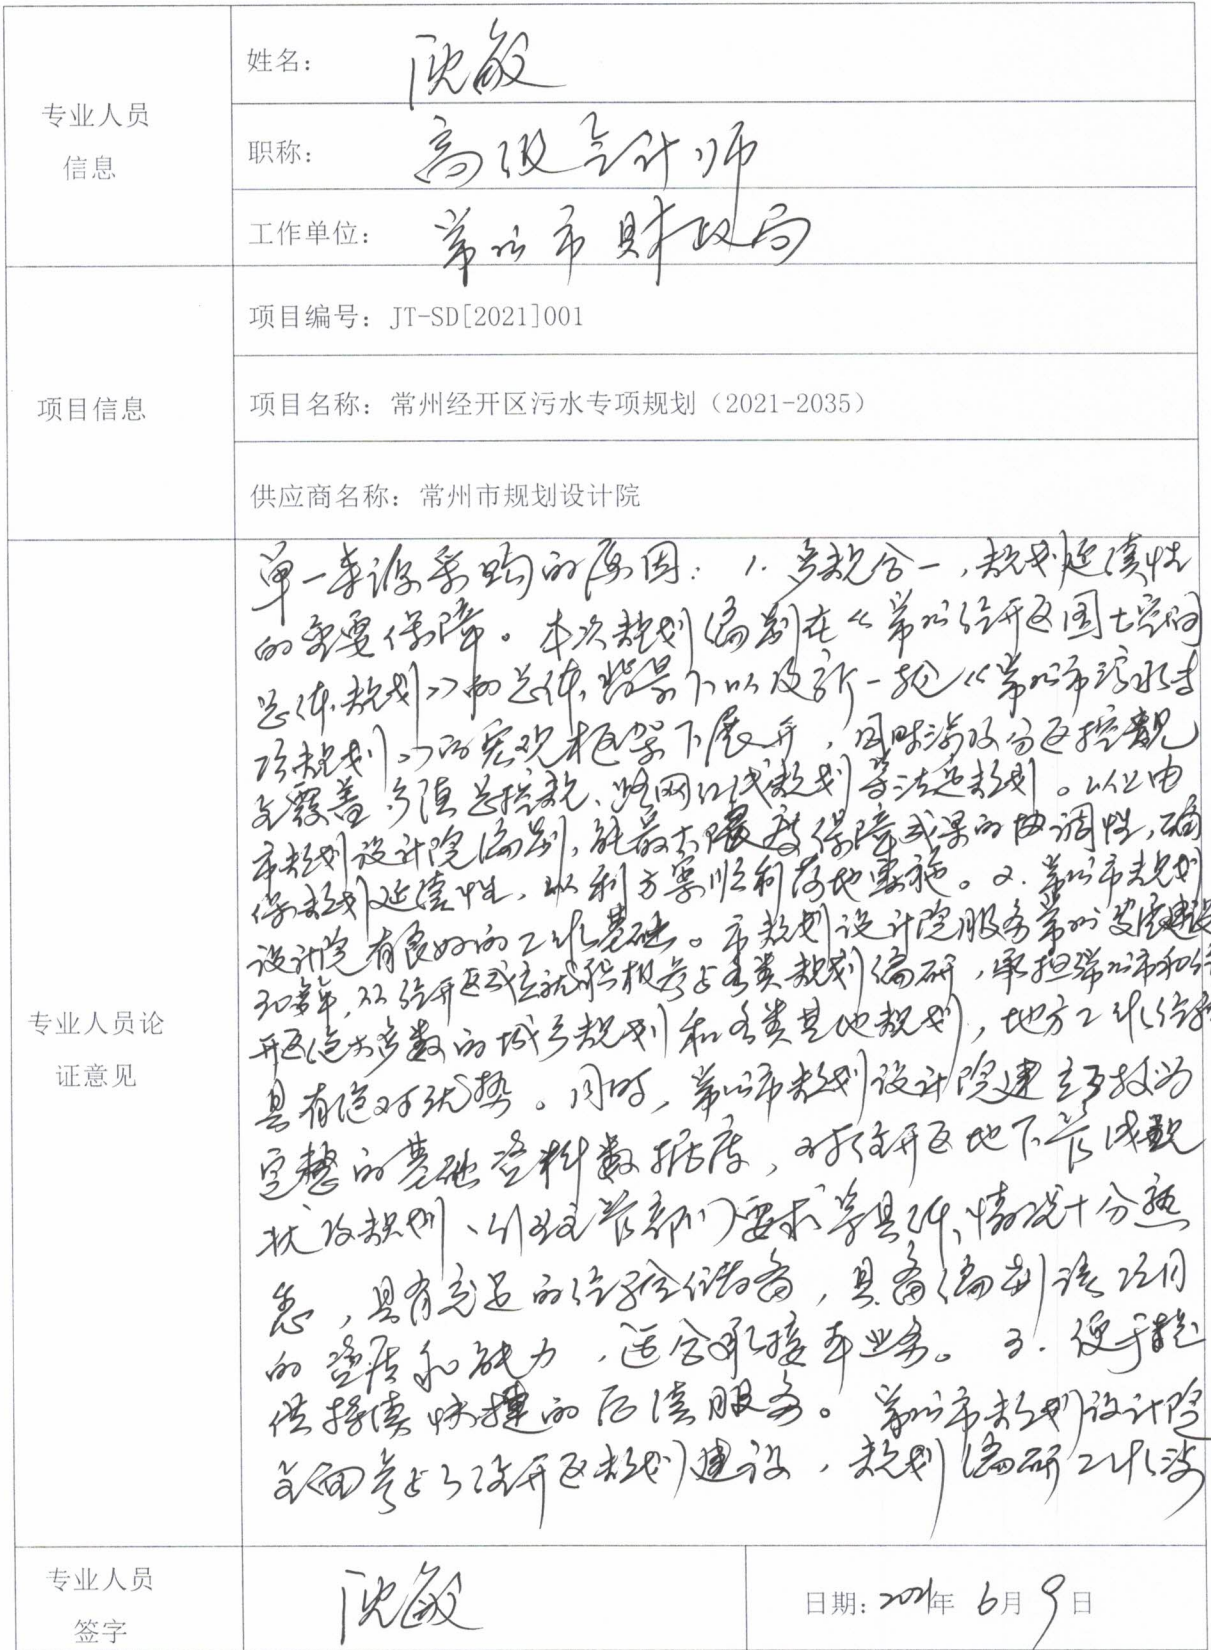 专业人员
信息
姓名：
敏
职称：高级会计师
工作单位：常州市财政局
项目信息
项目编号：JT-SD[2021]001
项目名称：常州经开区污水专项规划（2021-2035）
供应商名称：常州市规划设计院
专业人员论
证意见
单一来源采购的原因：1. 多规合一，规划延续性
的重要保障。本次规划编制在《常州经开区国土空间
总体规划》的总体背景下以及新一轮《常州市污水专
项规划》的宏观框架下展开，同时涉及分区控规
全覆盖 总控规、路网红线规划等法定规划。 由
市规划设计院编制，能最大限度保障成果的协调性，确
保规划延续性，以利方案顺利落地实施。2. 常州市规划
设计院有良好的工作基础。市规划设计院服务常州发展建设
30多年，从经开区成立就积极参与各类规划编研，承担常州市和经
开区绝大多数的城乡规划和各类其他规划，地方工作经验
具有绝对优势。同时，常州市规划设计院建立了较为
完整的基础资料数据库，对经开区地下管线现
状及规划、 主管部门要求等具体情况十分熟
悉，具有充足的经验储备，具备编制该项目
的资质和能力，适合承接本业务。3. 便于提
供持续快捷的后续服务。常州市规划设计院
全面参与了经开区规划建设，规划编研工作涉
专业人员
签字
敏
日期：2021年 6月 9日